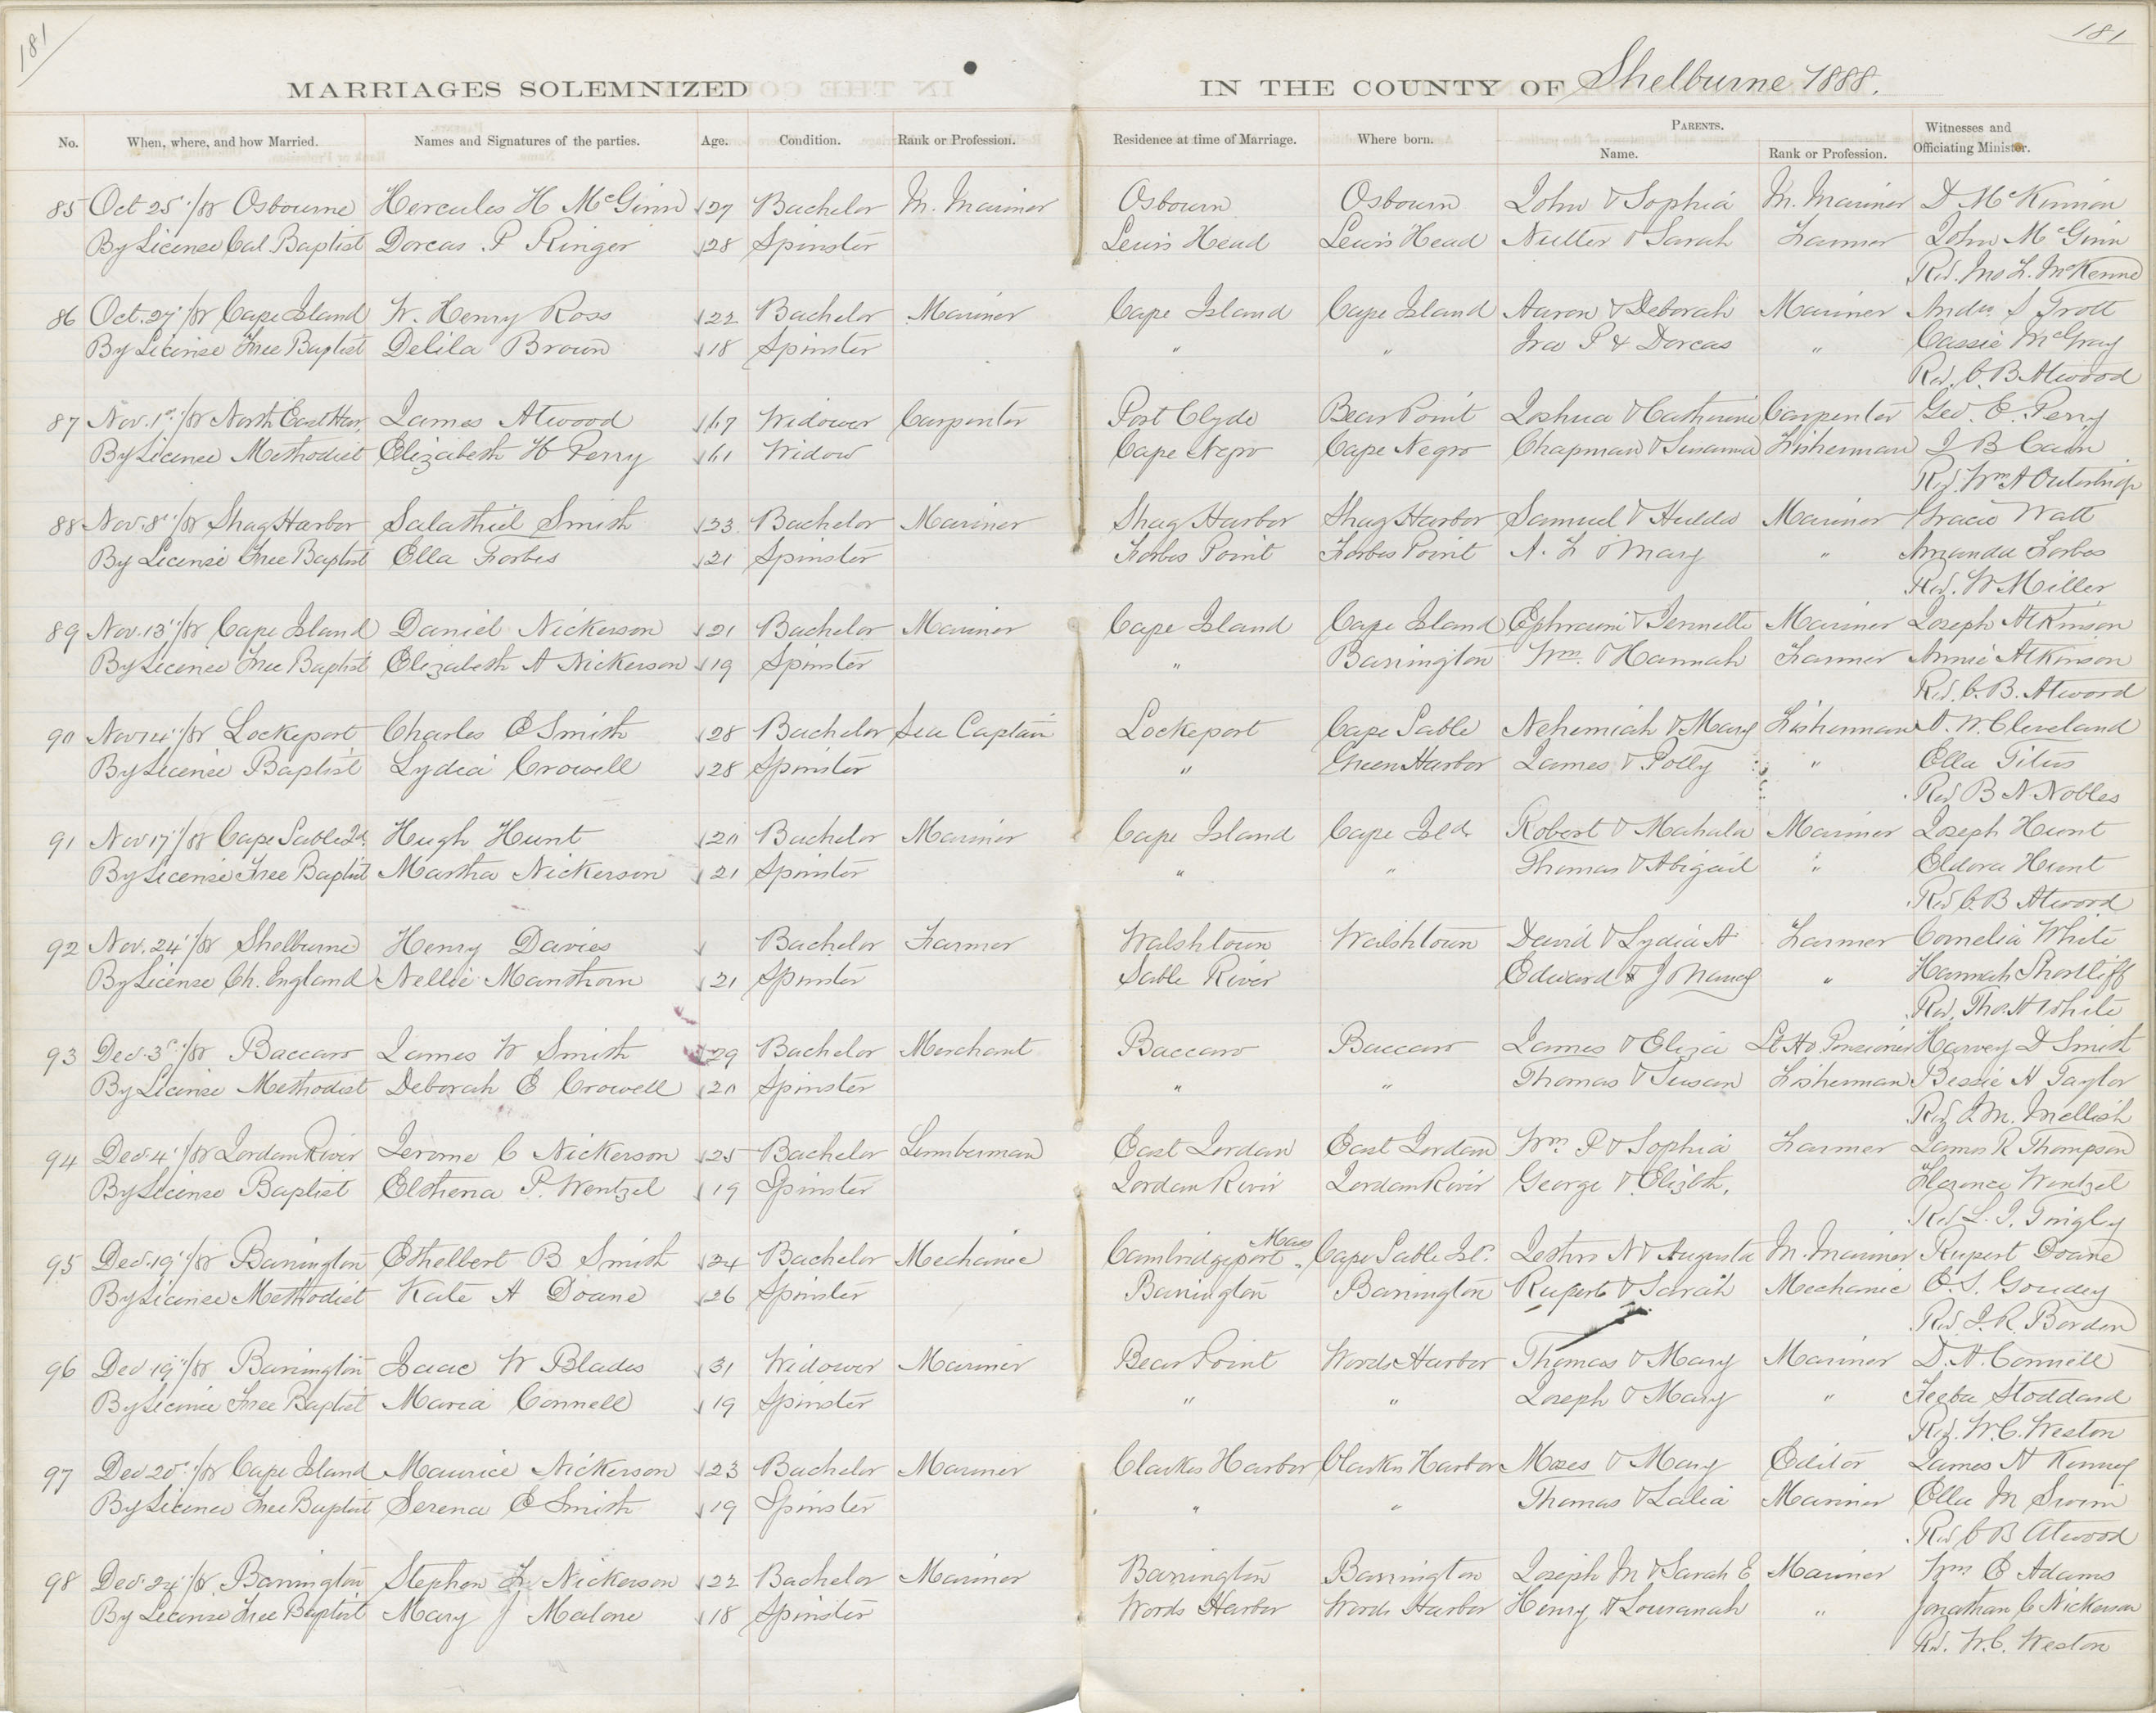 181
181
MARRIAGES SOLEMNIZED IN THE COUNTY OF Shelburne 1888.
No. When, where, and how Married. Names and Signatures of the parties. Age. Condition. Rank or Profession. Residence at time of Marriage. Where born. PARENTS. Name. Rank or Profession. Witnesses and Officiating Minister.
85 Oct 25"/88 Osbourne Hercules H McGinn 27 Bachelor M. Mariner Osbourn Osbourn John & Sophia M. Mariner D McKinnon
By License Cal Baptist Dorcas P Ringer 28 Spinster Lewis Head Lewis Head Nutter & Sarah Farmer John McGinn
Rev. Jno L. McKenne
86 Oct. 27"/88 Cape Island W. Henry Ross 22 Bachelor Mariner Cape Island Cape Island Aaron & Deborah Mariner Andw S Trott
By License Free Baptist Delila Brown 18 Spinster " " Ira P & Dorcas " Cassie McGray
Rev. C. B Atwood
87 Nov. 1st/88 North East Har. James Atwood 67 Widower Carpenter Port Clyde Bear Point Joshua & Catherine Carpenter Geo. E. Perry
By License Methodist Elizabeth H Perry 61 Widow Cape Negro Cape Negro Chapman & Susanna Fisherman J B Cann
Rev. Wm A Outerbrige
88 Nov. 8"/88 Shag Harbor Salathiel Smith 23 Bachelor Mariner Shag Harbor Shag Harbor Samuel & Hulda Mariner Gracie Watt
By License Free Baptist Ella Forbes 21 Spinster Forbes Point Forbes Point A. L & Mary " Amanda Forbes
Rev. W Miller
89 Nov. 13"/88 Cape Island Daniel Nickerson 21 Bachelor Mariner Cape Island Cape Island Ephraim & Jennette Mariner Joseph Atkinson
By License Free Baptist Elizabeth A Nickerson 19 Spinster " Barrington Wm. & Hannah Farmer Annie Atkinson
Rev. C. B. Atwood
90 Nov 14"/88 Lockeport Charles E Smith 28 Bachelor Sea Captain Lockeport Cape Sable Nehemiah & Mary Fisherman A. W. Cleveland
By License Baptist Lydia Crowell 28 Spinster " Green Harbor James & Polly " Ella Titus
Rev B N Nobles
91 Nov 17"/88 Cape Sable Id. Hugh Hunt 20 Bachelor Mariner Cape Island Cape Isld. Robert & Mahala Mariner Joseph Hunt
By License Free Baptist Martha Nickerson 21 Spinster " " Thomas & Abigail " Eldora Hunt
Rev C. B Atwood
92 Nov. 24"/88 Shelburne Henry Davies Bachelor Farmer Walshtown Walshtown David & Lydia A Farmer Cornelia White
By License Ch. England Nellie Manthorn 21 Spinster Sable River Edward & J Nancy " Hannah Shortliff
Rev. Tho. H White
93 Dec. 3"/88 Baccaro James W Smith 29 Bachelor Merchant Baccaro Baccaro James & Eliza Lt Ho Pensioner Harvey D Smith
By License Methodist Deborah E Crowell 20 Spinster " " Thomas & Susan Fisherman Bessie H Taylor
Rev J. M. Mellish
94 Dec. 4"/88 Jordan River Jerome C Nickerson 25 Bachelor Lumberman East Jordan East Jordan Wm P & Sophia Farmer James R Thompson
By License Baptist Elthena P. Wentzel 19 Spinster Jordan River Jordan River George & Elizbth. Florence Wentzel
Rev L. J. Tingley
95 Dec. 19"/88 Barrington Ethelbert B Smith 24 Bachelor Mechanic Cambridgeport Mass. Cape Sable Isl. N & Augusta M. Mariner Rupert Doane
By License Methodist Kate A Doane 26 Spinster Barrington Barrington Rupert & Sarah Mechanic E. S. Goudey
Rev. J. R. Borden
96 Dec 19"/88 Barrington Isaac W Blades 31 Widower Mariner Bear Point Words Harbor Thomas & Mary Mariner D. A. Connell
By License Free Baptist Maria Connell 19 Spinster " " Joseph & Mary " Stoddard
Rev. W. C. Weston
97 Dec 20"/88 Cape Island Maurice Nickerson 23 Bachelor Mariner Clarkes Harbor Clarkes Harbor Moses & Mary Editor James A Kenney
By License Free Baptist Serena E Smith 19 Spinster " " Thomas & Lalia Mariner Ella M Swim
Rev C B Atwood
98 Dec. 24"/88 Barrington Stephen L. Nickerson 22 Bachelor Mariner Barrington Barrington Joseph M & Sarah E Mariner Wm E Adams
By License Free Baptist Mary J Malone 18 Spinster Words Harbor Words Harbor Henry & Louranah " Jonathan C Nickerson
Rev. W. C. Weston